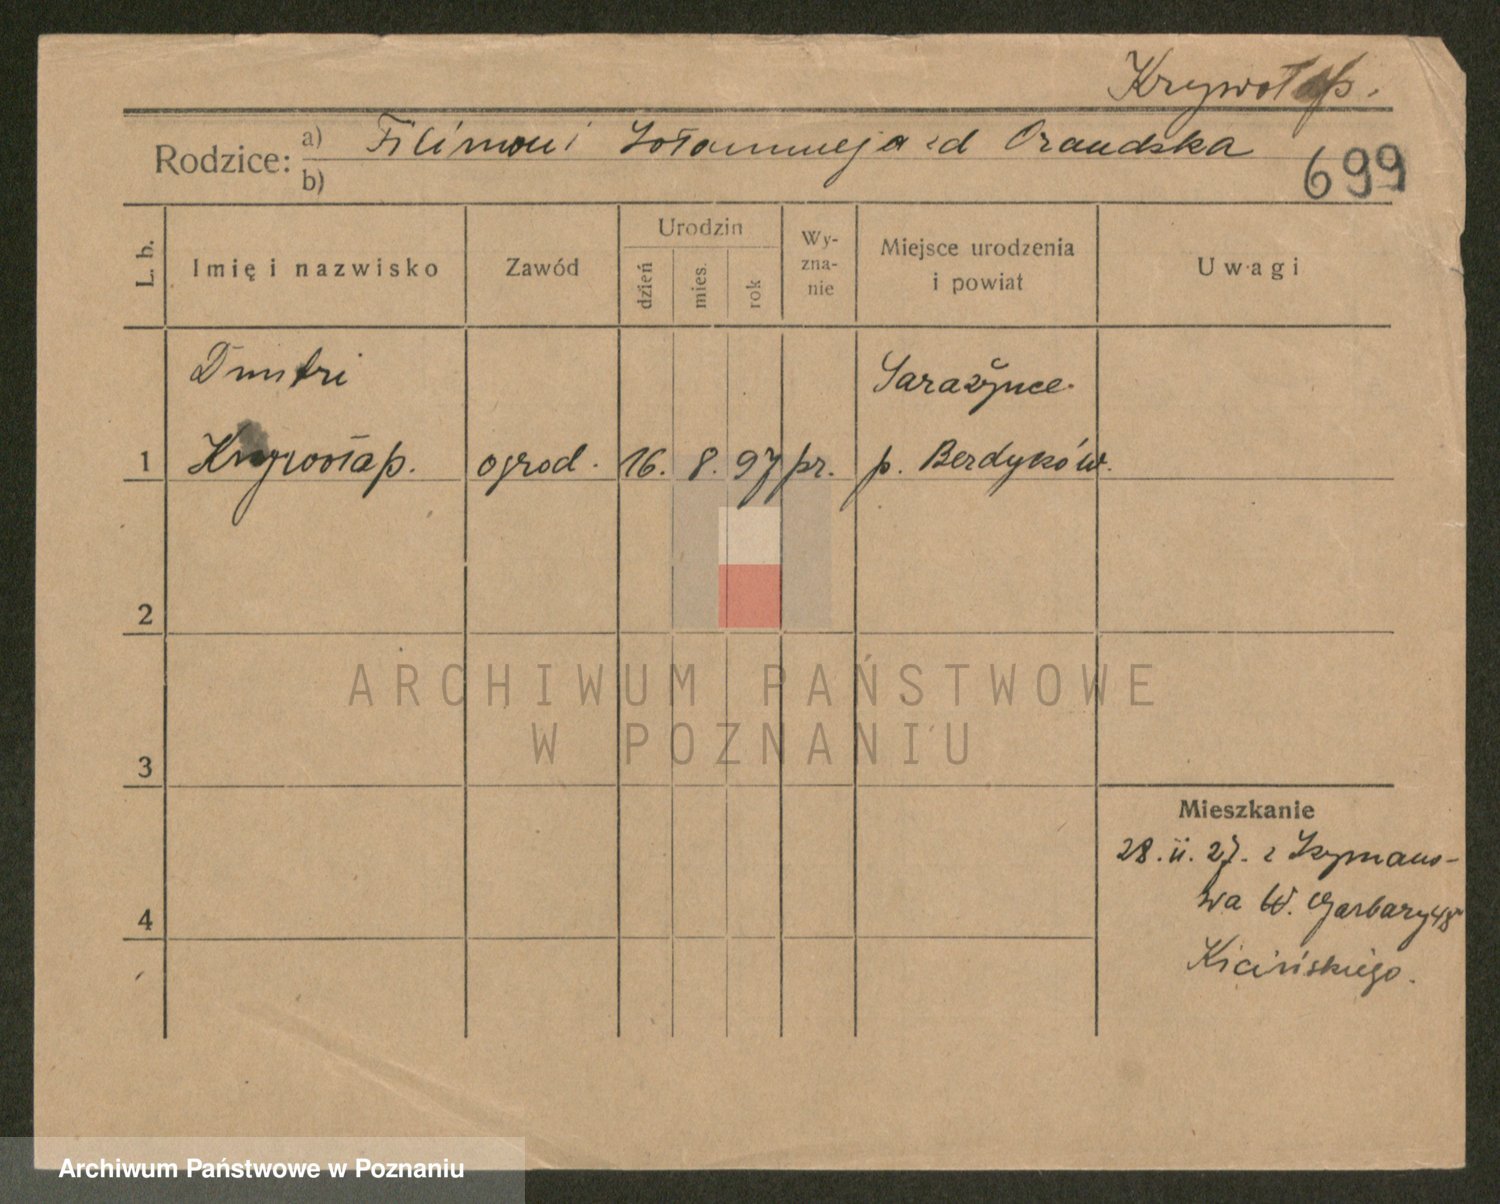 Krywołap.
Rodzice: a) Filimon i Sołommeja zd Orandska
b)
699
L. b.
Imię i nazwisko
Zawód
Urodzin
dzień
mies.
rok
Wy-
zna-
nie
Miejsce urodzenia
i powiat
Uwagi
Dmitri
Sarażynce.
1 Krywołap. ogrod. 16. 8. 97 pr. p. Berdyków.
2
3
4
Mieszkanie
28. 11. 27. z Szymano-
wa W. Garbary 48
Kicińskiego.
ARCHIWUM PAŃSTWOWE
W POZNANIU
Archiwum Państwowe w Poznaniu